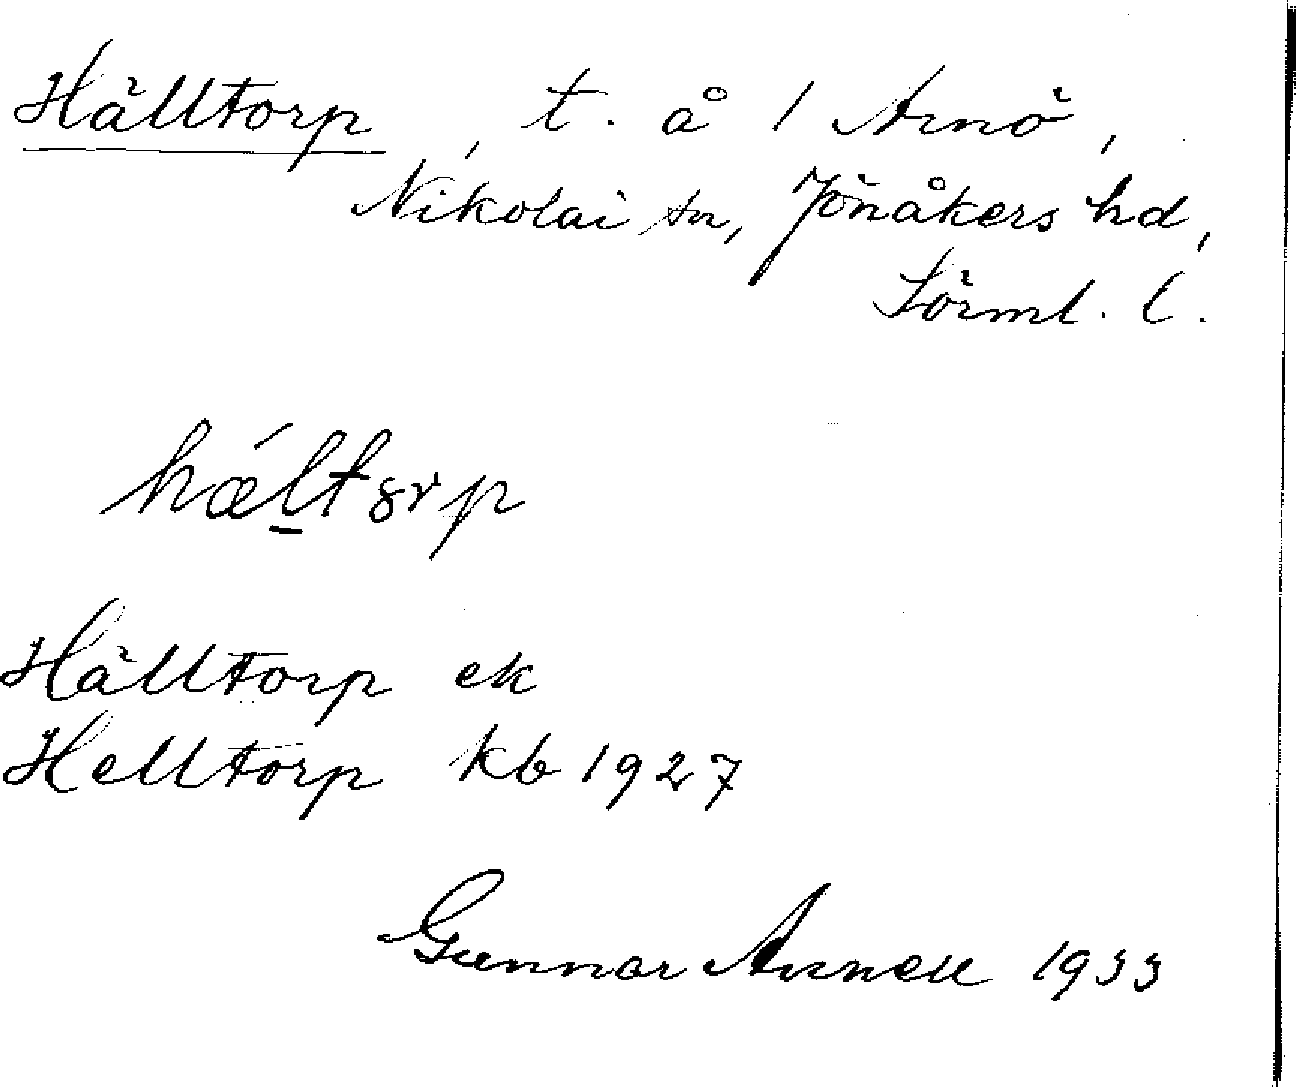 Hälltorp, t. å 1 Arnö,
Nikolai sn, Jönåkers hd,
Sörml. l.
hǽl̲tȣrp
Hälltorp ek
Helltorp kb 1927
Gunnar Annell 1933